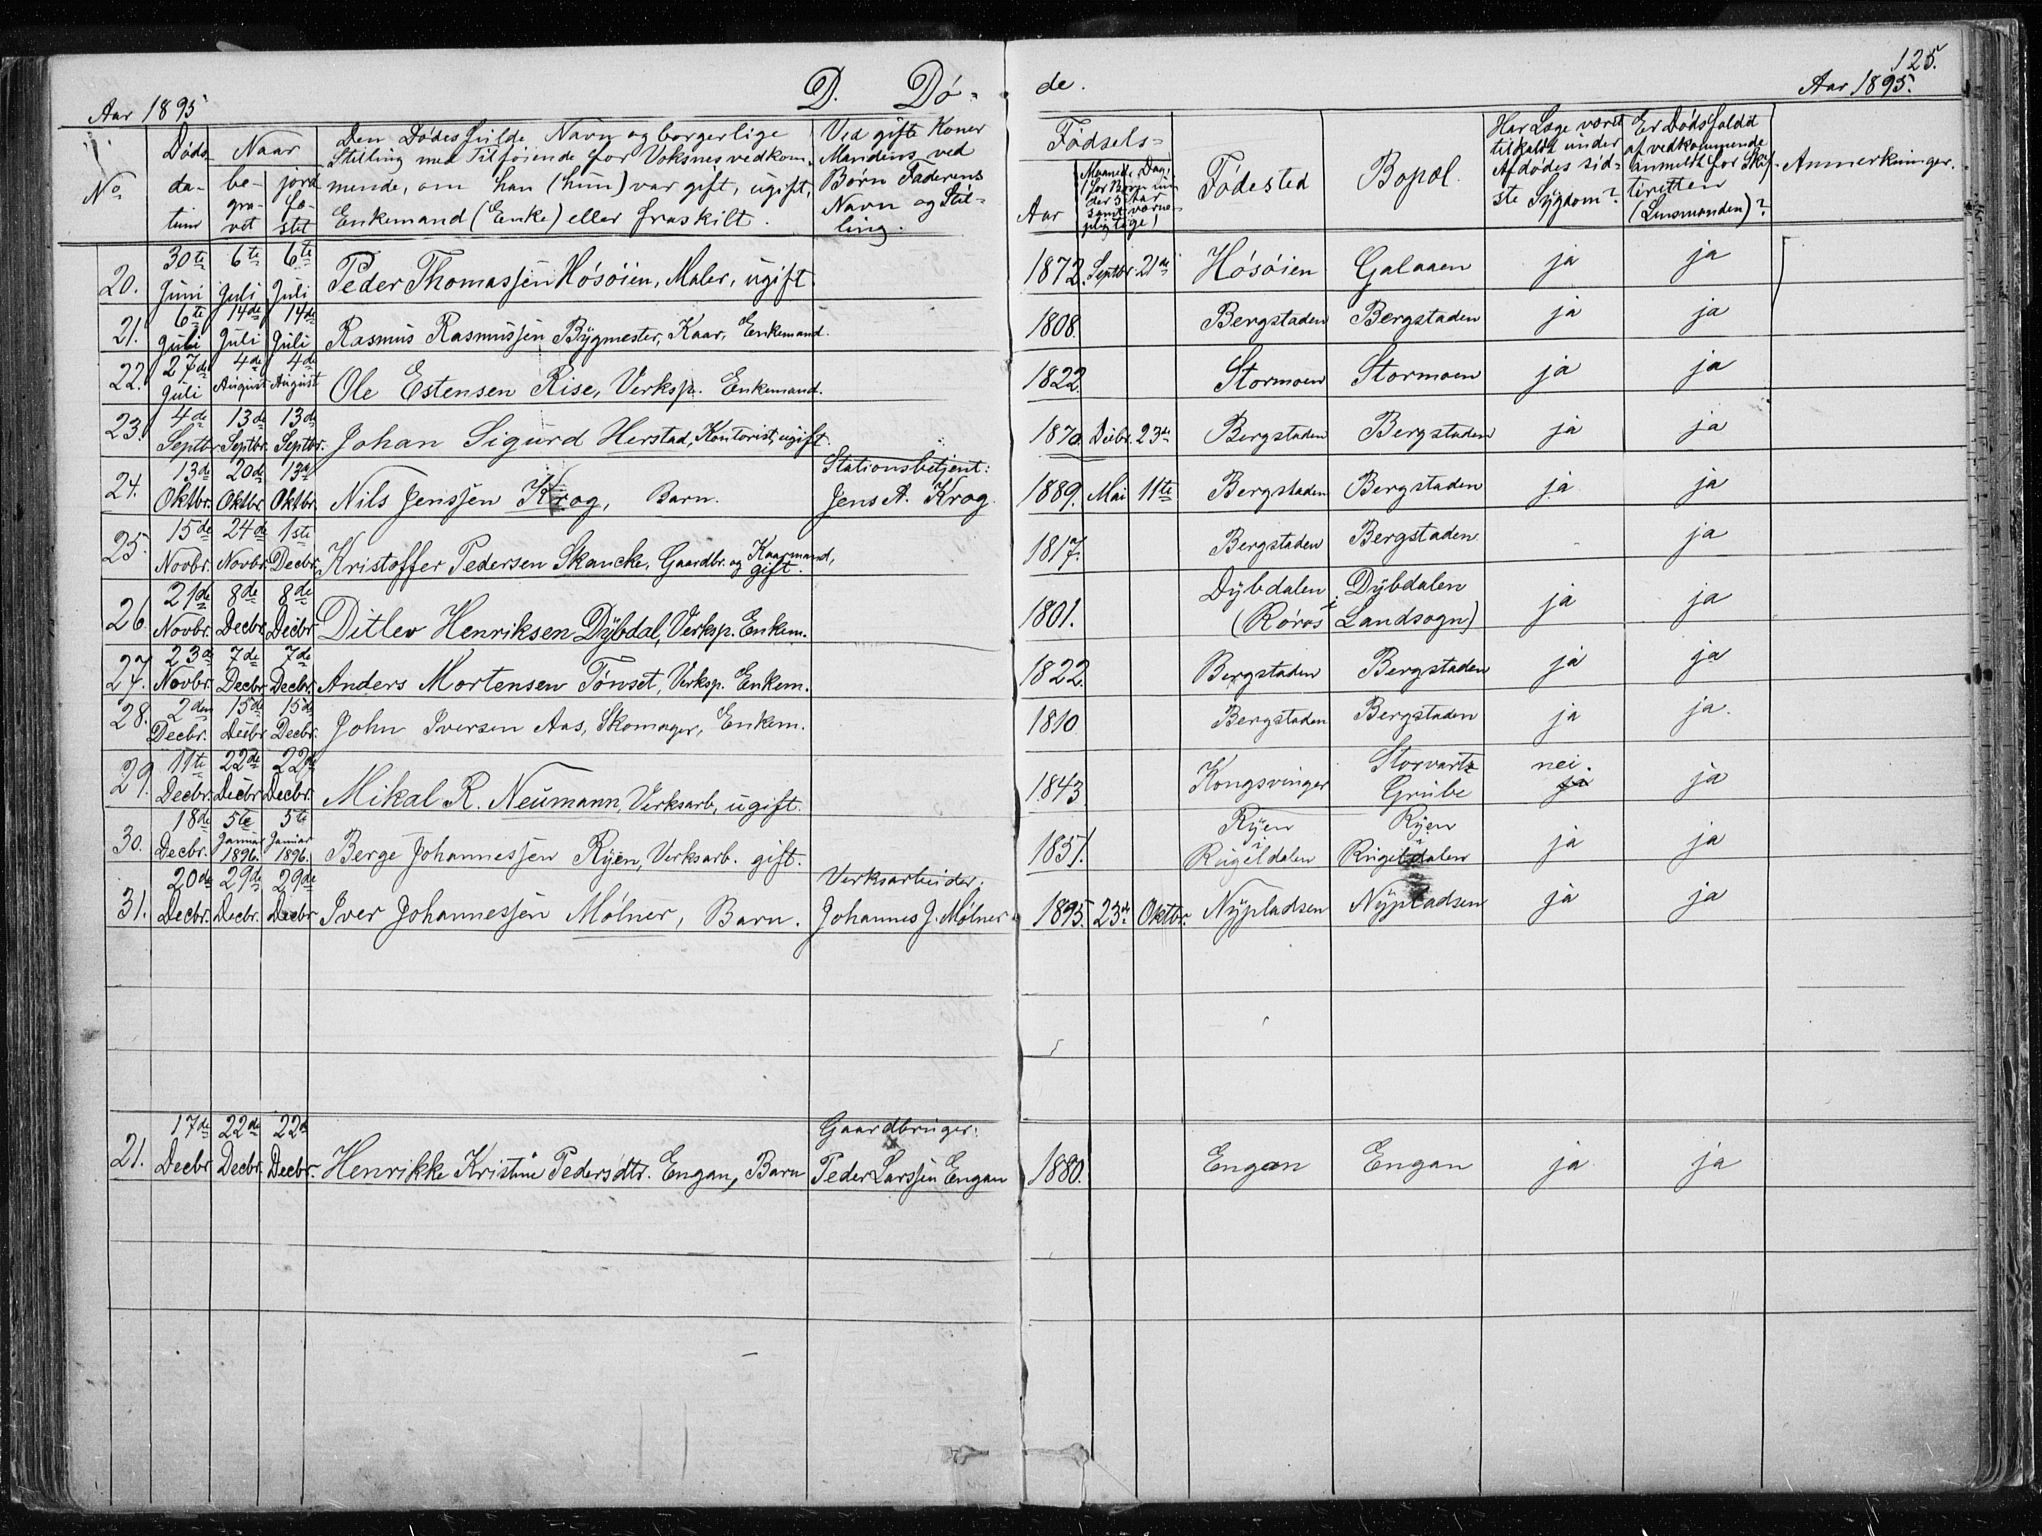 125.
Aar 1895 D. Dö- de. Aar 1895.
No Dödsdatum Naar begravet jordfæstet Den Dödes fulde Navn og borgerlige Stilling med Tilföiende for Voksnes vedkommende, om han (hun) var gift, ugift, Enkemand (Enke) eller fraskilt. Ved gifte Koner Mandens, ved Börn Faderens Navn og Stilling. Födsels- Aar Maaned, Dag, (for Börn under 5 Aar samt værnepligtige) Födested Bopæl. Har Læge været tilkaldt under Afdödes sidste Sÿgdom? Er Dödsfaldet af vedkommende anmeldt for Skifteretten (Lensmanden)? Anmerkninger.
20. 30te Juni 6te Juli 6te Juli Peder Thomassen Hösöien, Maler, ugift. 1872. Septbr. 21de Hösöien Galaaen ja ja
21. 6te Juli 14de Juli 14de Juli Rasmus Rasmussen Bÿgmester, Kaar, Enkemand. 1808. Bergstaden Bergstaden ja ja
22. 27de Juli 4de August 4de August Ole Estensen Rise, Verksp. Enkemand. 1822. Stormoen Stormoen ja ja
23. 4de Septbr. 13de Septbr. 13de Septbr. Johan Sigurd Herstad, Kontorist, ugift 1870. Decbr. 23de Bergstaden Bergstaden ja ja
24. 13de Oktbr. 20de Oktbr. 13de Oktbr. Nils Jenssen Krog, Barn. Stationsbetjent: Jens A. Krog. 1889. Mai 11te Bergstaden Bergstaden ja ja
25. 15de Novbr. 24de Novbr. 1ste Decbr. Kristoffer Pedersen Skancke, Gaardbr. og Kaarmand, gift. 1817. Bergstaden Bergstaden - ja
26. 21de Novbr. 8de Decbr. 8de Decbr. Ditlev Henriksen Dÿbdal, Verksp. Enkem. 1801. Dÿbdalen Dÿbdalen (Röros Landsogn) ja ja
27. 23de Novbr. 7de Decbr. 7de Decbr. Anders Mortensen Tönset, Verksp. Enkem. 1822. Bergstaden Bergstaden ja ja
28. 2den Decbr. 15de Decbr 15de Decbr. John Iversen Aas, Skomager, Enkem. 1810 Bergstaden Bergstaden ja ja.
29. 11te Decbr. 22de Decbr 22de Decbr. Mikal R. Neumann, Verksarb, ugift. 1843 Kongsvinger Storvartz Grube nei. ja ja
30. 18de Decbr. 5te Januar 1896. 5te Januar 1896. Berge Johannessen Rÿen, Verksarb. gift. 1851. Rÿen i Rugeldalen Rÿen i Rugeldalen ja ja
31. 20de Decbr. 29de Decbr. 29de Decbr Iver Johannessen Mölner, Barn. Verksarbeider: Johannes J. Mölner 1895. 23de Oktbr. Nÿpladsen Nÿpladsen ja ja
21. 17de Decbr. 22de Decbr. 22de Decbr. Henrikke Kristine Pedersdtr. Engan, Barn Gaardbruger: Peder Larssen Engan 1880. Engan Engan ja ja